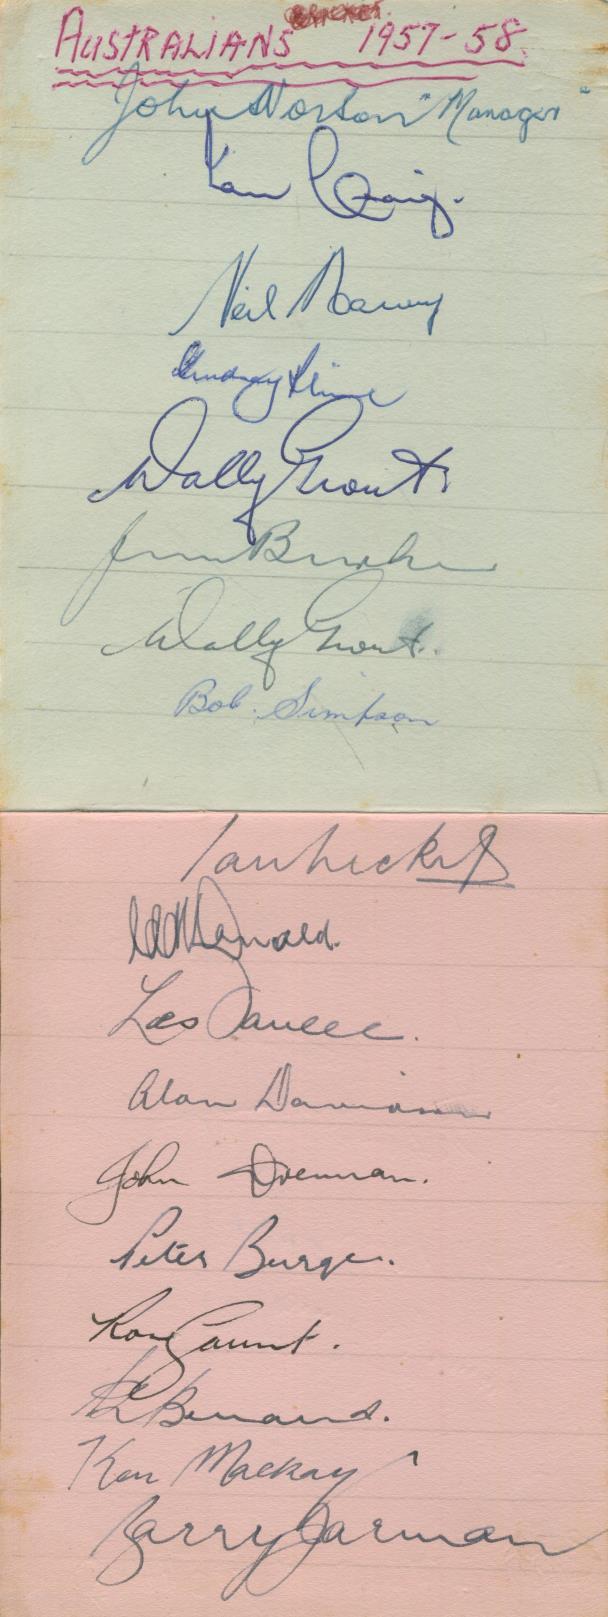 CRICKET
AUSTRALIANS 1957-58.
John Norton "Manager"
Ian Craig.
Neil Harvey
Lindsay Kline
Wally Grout
Jim Burke
Wally Grout.
Bob. Simpson
Ian Meckiff
C McDonald.
Les Favell.
Alan Davidson
John Drennan.
Peter Burge.
Ron Gaunt.
R Benaud.
Ken Mackay
Barry Jarman